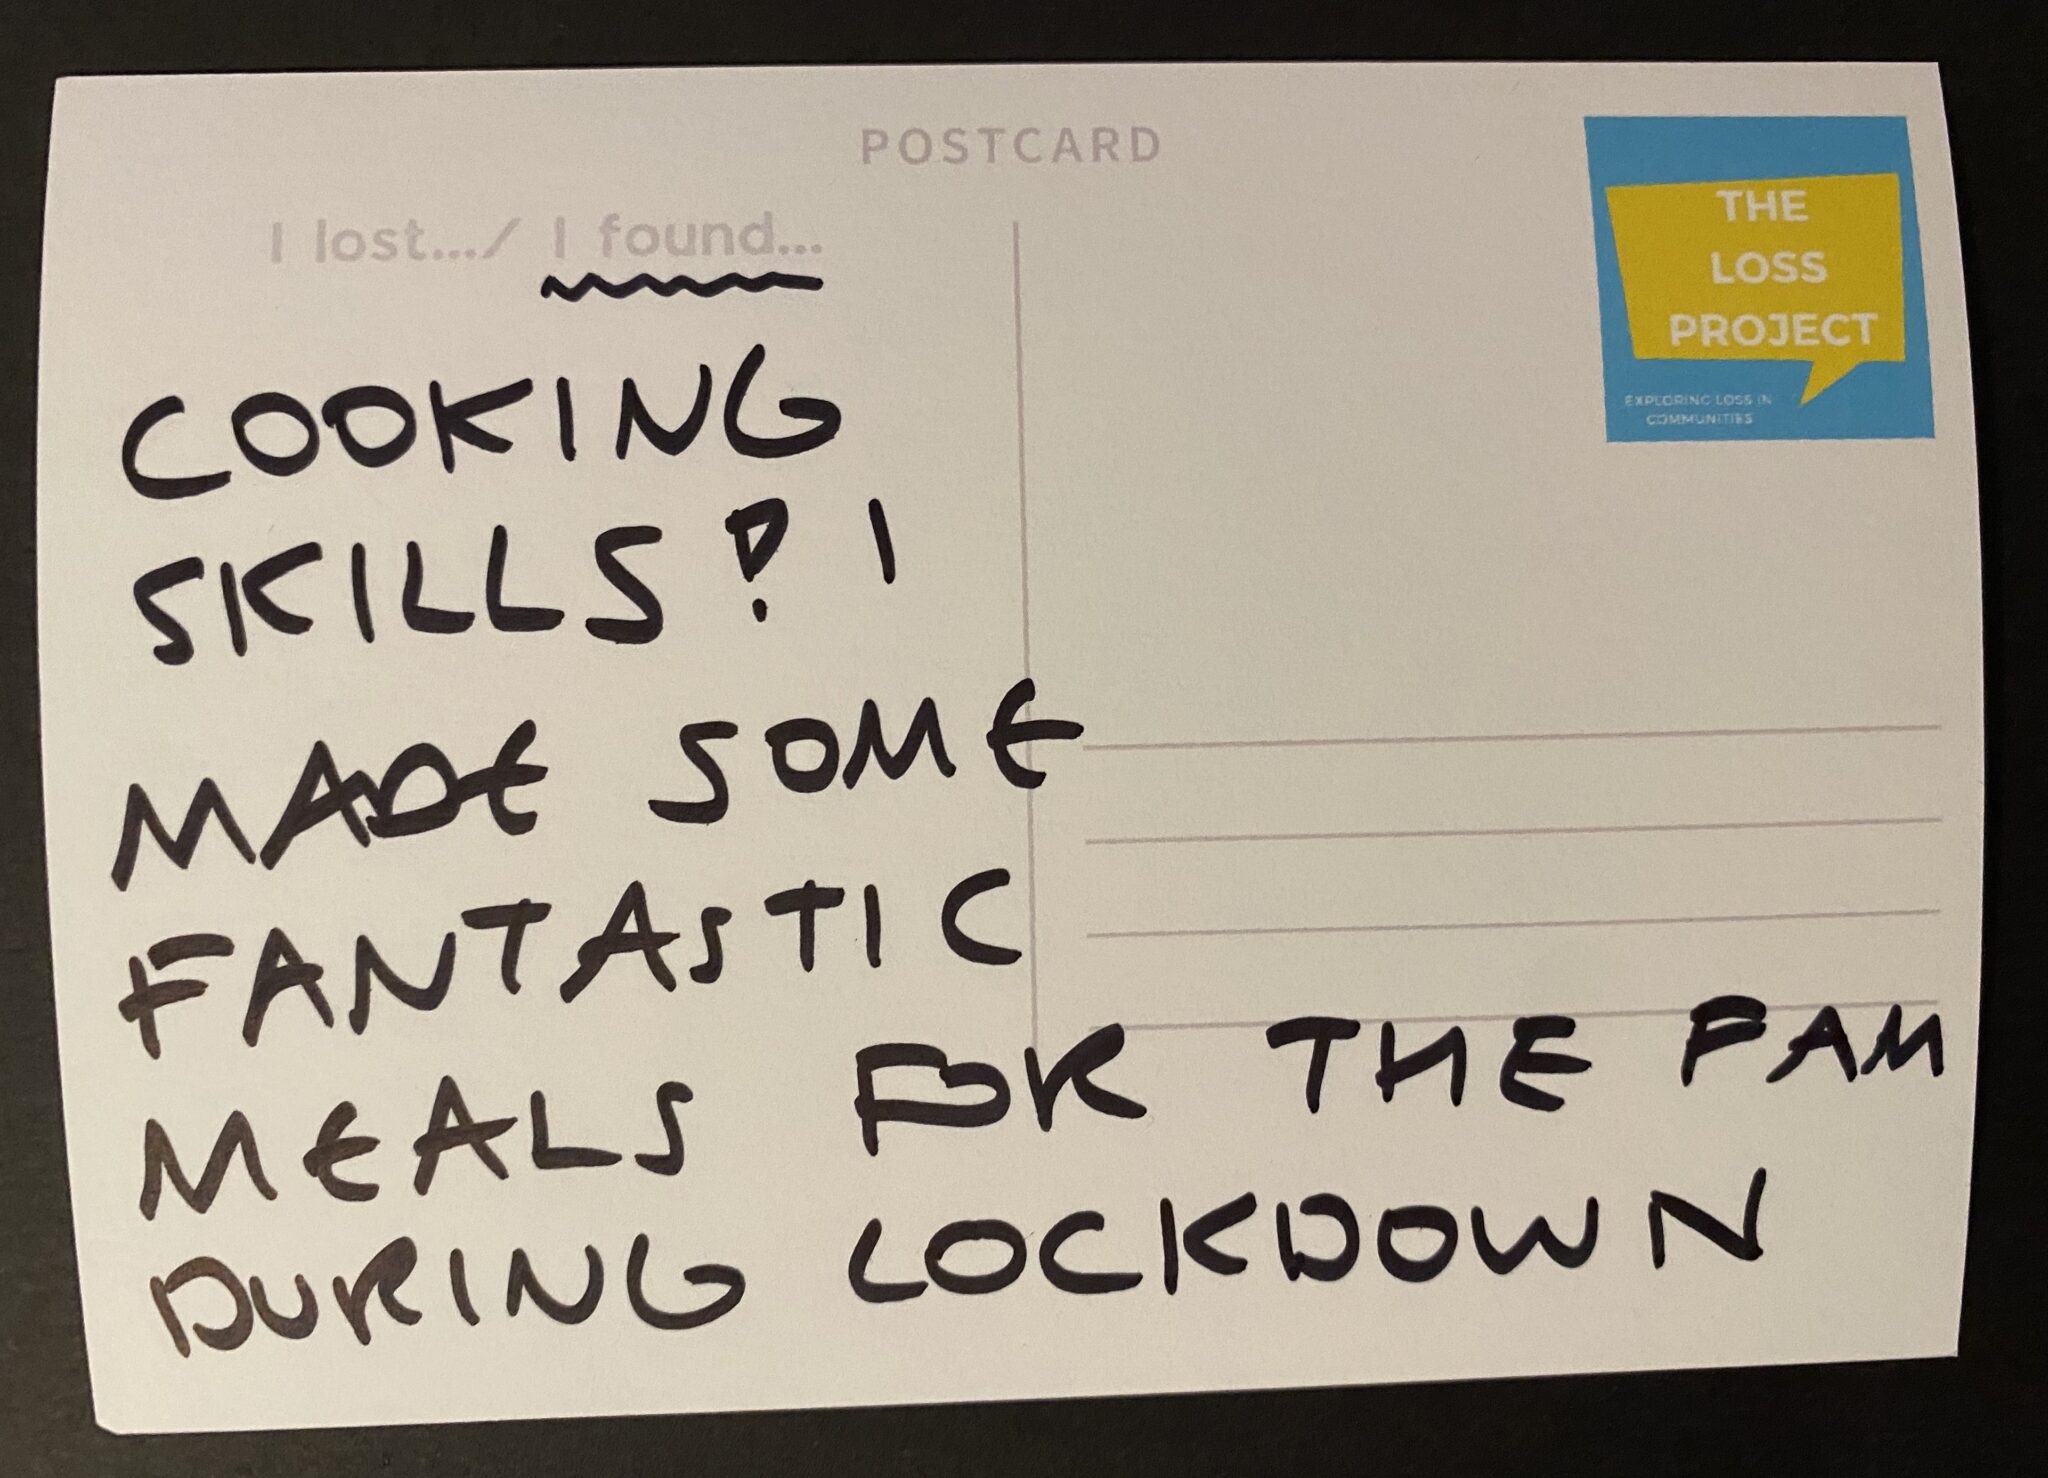 POSTCARD
I lost.../ I found...
THE
LOSS
PROJECT
EXPLORING LOSS IN
COMMUNITIES
COOKING
SKILLS? I
MADE SOME
FANTASTIC
MEALS FOR THE FAM
DURING LOCKDOWN